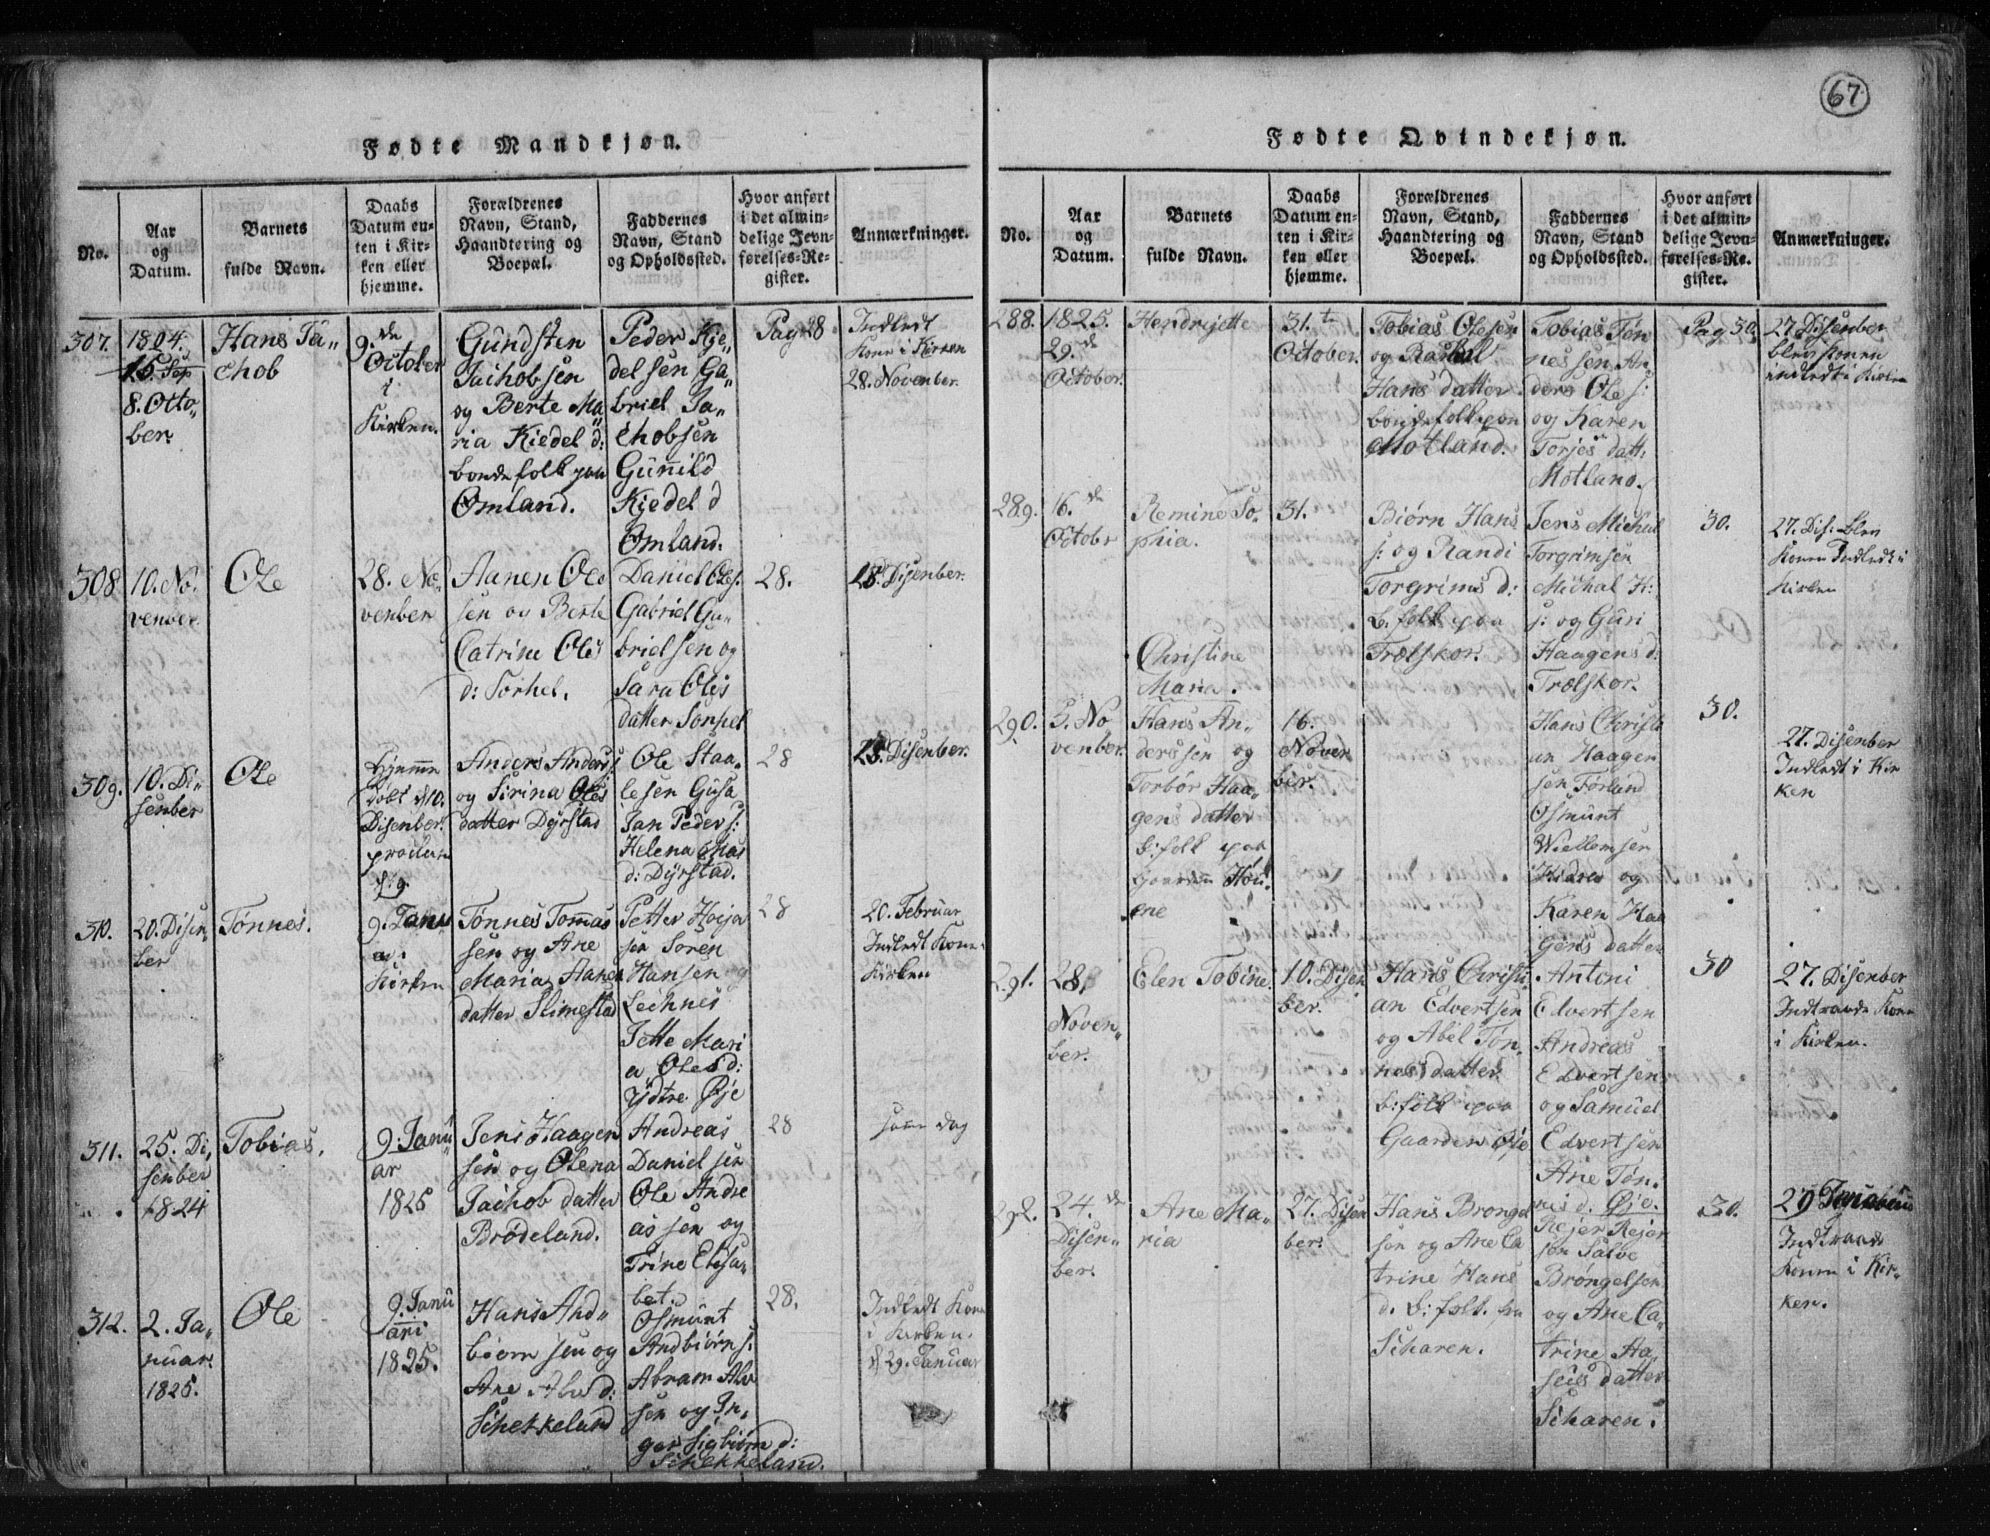 67.
Fødte Mandkjøn.
No.
Aar
og
Datum.
Barnets
fulde Navn.
Daabs
Datum en-
ten i Kir-
ken eller
hjemme.
Forældrenes
Navn, Stand,
Haandtering og
Boepæl.
Faddernes
Navn, Stand
og Opholdssted.
Hvor anført
i det almin-
delige Jevn-
førelses-Re-
gister.
Anmærkninger.
307.
1804.
15 Sep
8. Octo„
ber.
Hans Ja„
chob
9. de
October
i
Kirken.
Gundsten
Jachobsen
og Berte Ma
ria Kiedel d:
bonde folk paa
Omland.
Peder Kje„
delsen Ga„
briel Ja„
chobsen
Gunnild
Kjedel d
Omland.
Pag 28
Indledt
Kone i Kirken
28. November.
308
10. No„
venber.
Ole
28. No„
venber
Aanen Ole
sen og Berte
Catrine Oles
d: Sørhel.
Daniel Oles:
Gabriel Ga„
brielsen og
Sara Oles
datter Sørhel
28.
18. Disenber.
309.
10. Di„
senber
Ole
Hjemme
Døbt d 10.
Disenber.
Anders Anders:
og Sirina Oles
datter Dyrstad
Ole Staa„
lesen Gusa
Jan Peder s:
Helena Mas
d: Dyrstad.
28
28. Disenber.
310.
20. Disen„
ber
Tønnes.
9. Janu
a.
Kirken
Tønnes Tomas
sen og Ane
Maria Aanen
datter Slimestad
Petter Hoija
sen Soren
Hansen og
Lechnes
Jette Mari
a Oles d:
Ydtre Øje
28
20. Februar
Indledt Kone
Kirken
311.
25. Di„
senber
1824
Tobias.
9. Janu
ar
1825
Jens Haagen
sen og Olena
Jachob datter
Brødeland.
Andreas
Danielsen
Ole Andre
assen og
Trine Elisa„
bet.
28
some dag
312.
2. Ja„
nuar.
1825.
Ole
9. Janu
ari
1825.
Hans And„
biørn sen og
Ane Abra d:
Schekkeland
Osmunt
Andbiørn s:
Abram Abr
sen og In„
ger Sigbiørn d:
Schekkeland.
28.
Indledt Kone
i Kirken.
d 29. Januar
Fødte Qvindekjøn.
No.
Aar
og
Datum.
Barnets
fulde Navn.
Daabs
Datum en-
ten i Kir-
ken eller
hjemme.
Forældrenes
Navn, Stand,
Haandtering og
Boepæl.
Faddernes
Navn, Stand
og Opholdssted.
Hvor anført
i det almin-
delige Jevn-
førelses-Re-
gister.
Anmærkninger.
288.
1825.
29. de
October.
Hendrijette
31. te
October.
Tobias Olesen
og Rachel
Hans datter
bonde folk paa
Motland.
Tobias Tøn
nessen An„
ders Ole s:
og Karen
Torjes datt.
Motland.
Pag 30.
27 Disenber
blev Konen
indledt i Kirken
289.
16. de
Octobr
Remine So„
phia.
31.
Biørn Hans
s: og Randi
Torgrims d:
b. folk paa
Trælskor.
Jens Michal
Torgrimsen
Michal H:
s: og Guri
Haagens d:
Trælskor.
30.
27. Dis: blev
Konen Indledt i
Kirken
290.
5. No
venber.
Christine
Maria.
Hans An„
derssen og
Torbør Haa„
gens datter
b: folk paa
Gaarden Høu„
ene
16.
Noven
ber.
Hans Christi
an Haagen
sen Førland
Osmunt
Wiellemsen
Hidra og
Karen Haa
gens datter
30.
27. Disenber
Indledt i Kir
ken
291.
28.
Noven„
ber.
Elen Tobine.
10. Disen
ber.
Hans Christi
an Edvertsen
og Abel Tøn„
nes datter
b: folk paa
Gaarden Øje
Antoni
Edvertsen
Andreas
Edvertsen
og Samuel
Edvertsen
Ane Tøn„
nis d. Øje.
30
27. Disenber
Indtraade Kone
i Kirken.
292.
24. de
Disen„
ber.
Ane Ma„
ria
27. Disen
ber.
Hans Brongel
sen og Ane Ca
trine Hans
d. b: folk. fra
Scharen.
Rejer Rejer
sen Salve
Brøngelsen
og Ane Ca„
trine Aa„
seis datter
Scharen.
30.
29
Indtraade
Konen i Kir„
ken.